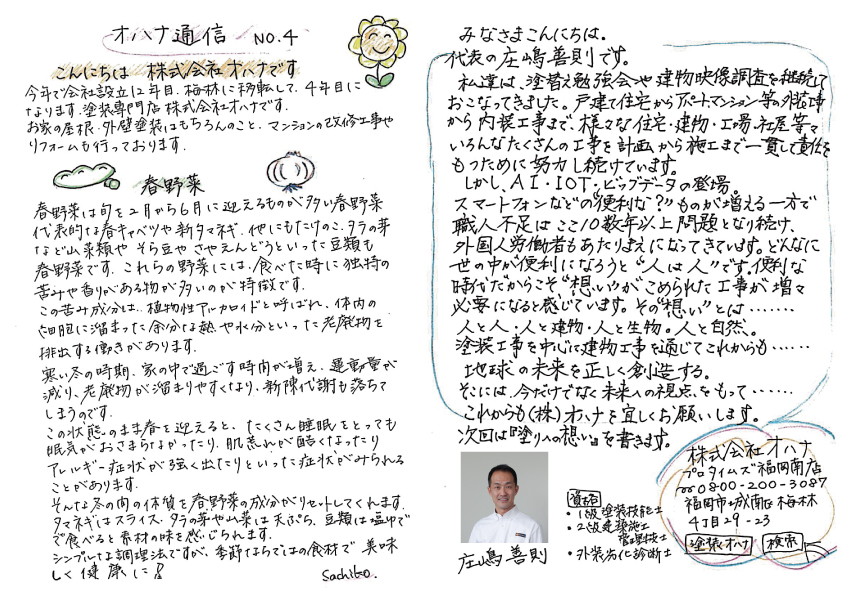 オハナ通信 NO.4
こんにちは 株式会社オハナです
今年で会社設立12年目、梅林に移転して、4年目に
なります。塗装専門店 株式会社オハナです。
お家の屋根・外壁塗装はもちろんのこと、マンションの改修工事や
リフォームも行っております。
春野菜
春野菜は旬を2月から6月に迎えるものが多い春野菜
代表的な春キャベツや新タマネギ、他にもたけのこ、タラの芽
など山菜類や そら豆や さやえんどうといった豆類も
春野菜です。これらの野菜には、食べた時に独特の
苦みや香りがある物が多いのが特徴です。
この苦み成分は、植物性アルカロイドと呼ばれ、体内の
細胞に溜まった余分な熱や水分といった老廃物を
排出する働きがあります。
寒い冬の時期、家の中で過ごす時間が増え、運動量が
減り、老廃物が溜まりやすくなり、新陳代謝も落ちて
しまうのです。
この状態のまま春を迎えると、たくさん睡眠をとっても
眠気がおさまらなかったり、肌荒れが酷くなったり
アレルギー症状が強く出たりといった症状がみられる
ことがあります。
そんな冬の間の体質を春野菜の成分がリセットしてくれます。
タマネギはスライス、タラの芽や山菜は天ぷら、豆類は塩ゆで
で食べると素材の味を感じられます。
シンプルな調理法ですが、季節ならではの食材で 美味
しく健康に!
Sachiko.
みなさまこんにちは。
代表の庄嶋善則です。
私達は、塗替え勉強会や建物映像調査を継続して
おこなってきました。戸建て住宅からアパート、マンション等の外装工事
から内装工事まで、様々な住宅・建物・工場・社屋等々
いろんなたくさんの工事を計画から施工まで一貫して責任を
もつために努力し続けています。
しかし、AI・IOT・ビッグデータの登場。
スマートフォンなどの“便利な?”ものが増える一方で
職人不足はここ10数年以上問題となり続け、
外国人労働者もあたりまえになってきています。どんなに
世の中が便利になろうと“人は人”です。便利な
時代だからこそ“想い”がこめられた工事が増々
必要になると感じています。その“想い”とは・・・・・・・
人と人・人と建物・人と生物。人と自然。
塗装工事を中心に建物工事を通じてこれからも・・・・・
地球の未来を正しく創造する。
そこには、今だけでなく未来への視点をもって・・・・・・
これからも(株)オハナを宜しくお願いします。
次回は『塗りへの想い』を書きます。
庄嶋 善則
資格
・1級塗装技能士
・2級建築施工
管理技士
・外装劣化診断士
株式会社オハナ
プロタイムズ福岡南店
☎0800-200-3087
福岡市城南区梅林
4丁目29-23
塗装オハナ 検索